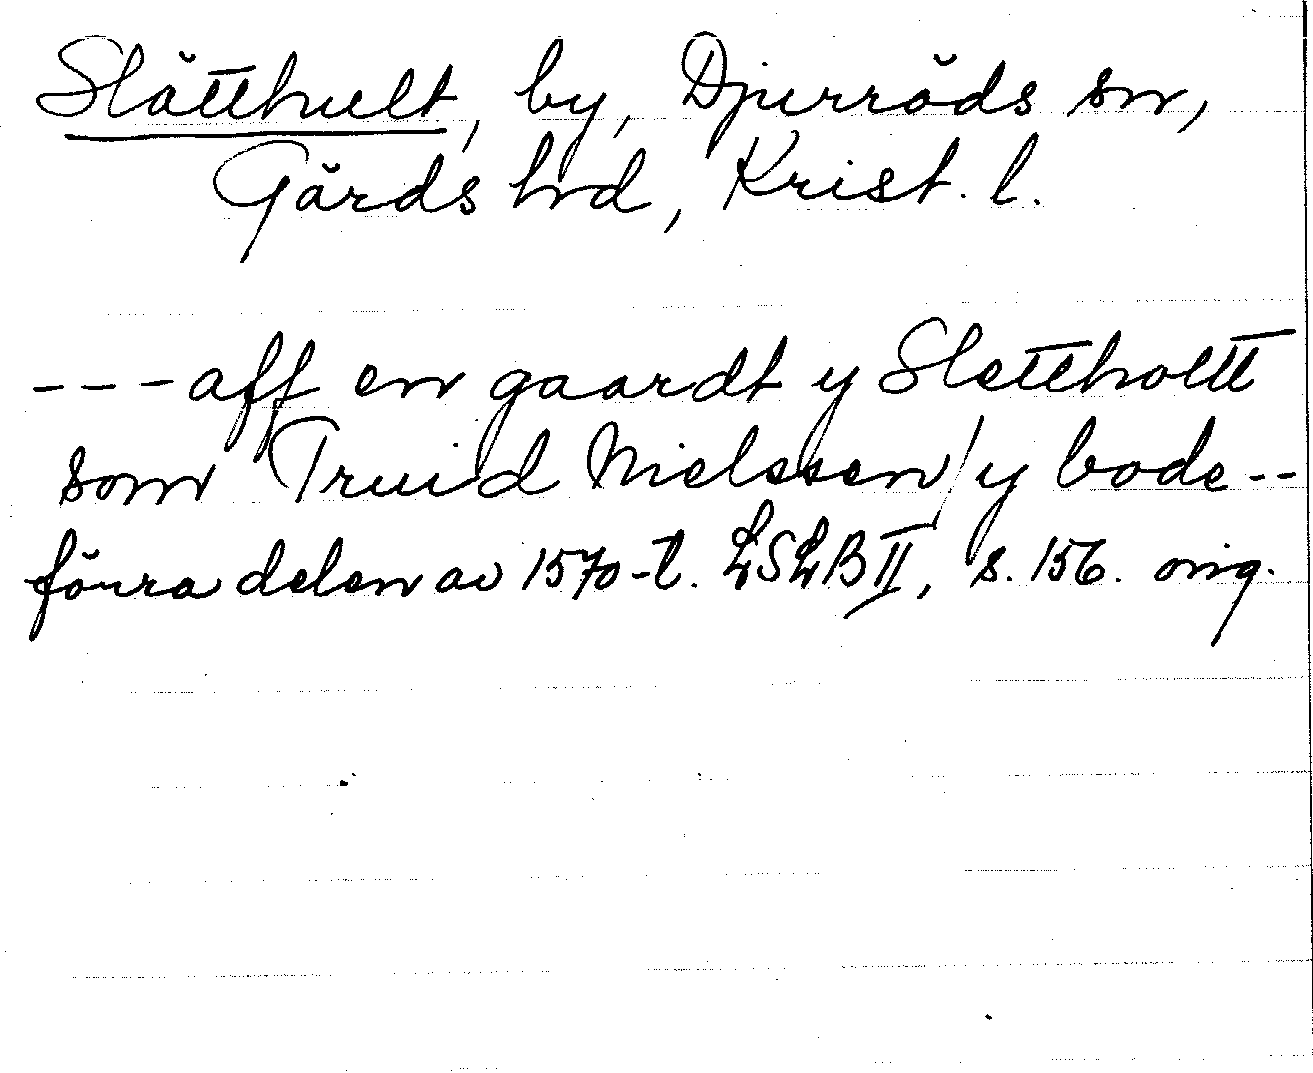 Slätthult, by, Djurröds sn,
Gärds hrd, Krist. l.
--- aff en gaardt y Slettholtt
som Truid Nielssen / y bode --
förra delen av 1570-t. LSLB II, s. 156. orig.